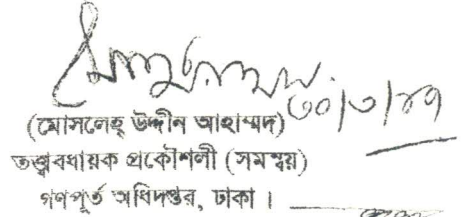 ৩০/৩/৮৭
(মোসলেহ্ উদ্দীন আহাম্মদ)
তত্ত্বাবধায়ক প্রকৌশলী (সমন্বয়)
গণপূর্ত অধিদপ্তর, ঢাকা ।